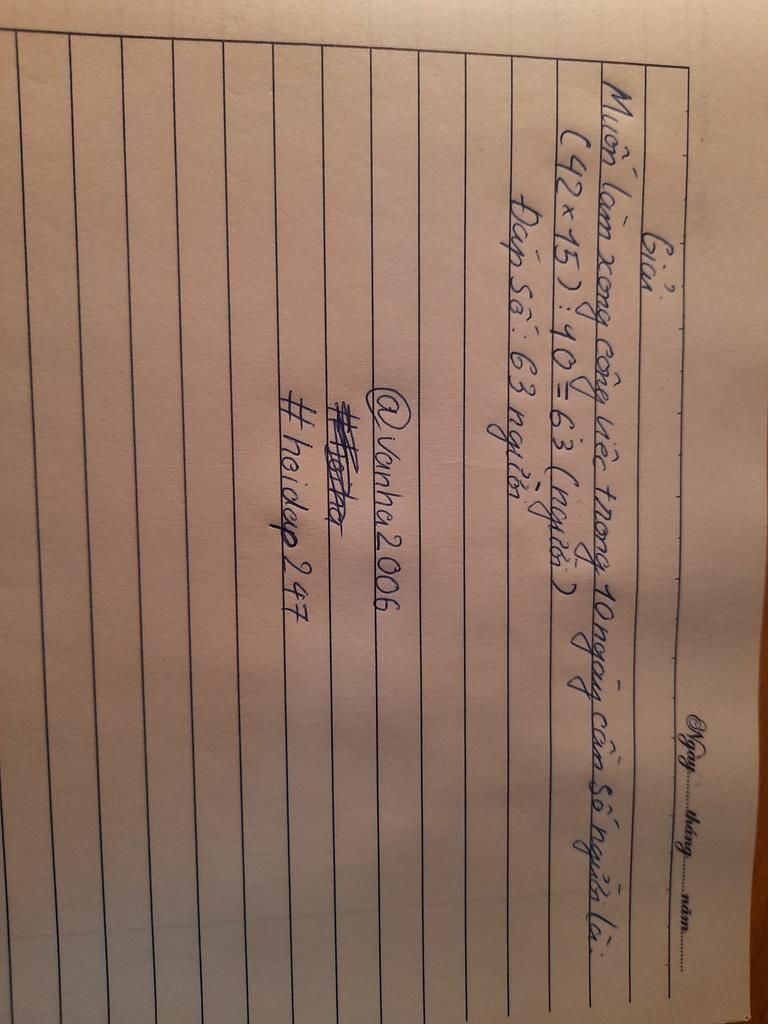 @Ngày.........tháng.........năm.........
Giải
Muốn làm xong công việc trong 10 ngày cần số người là:
(42 x 15) : 10 = 63 (người)
Đáp số: 63 người
@vanha2006
#hoidap247